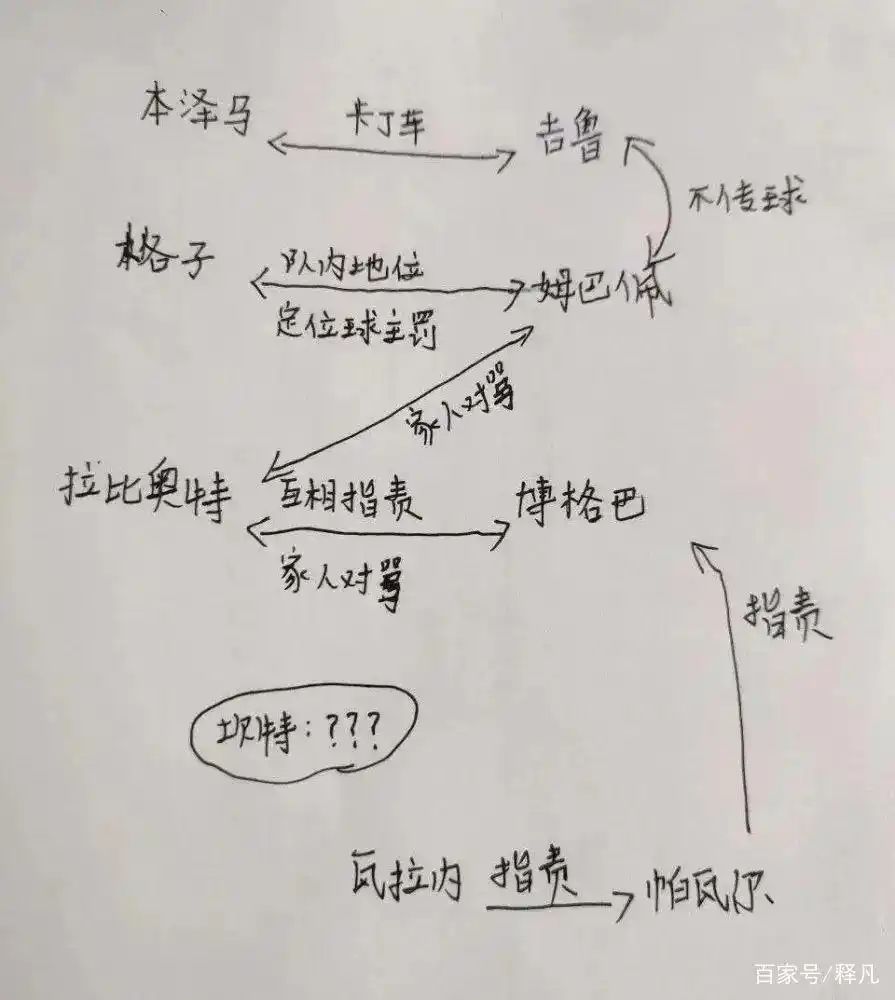 本泽马 卡丁车 吉鲁
不传球
格子 队内地位 姆巴佩
定位球主罚
家人对骂
拉比奥特 互相指责 博格巴
家人对骂
指责
坎特：？？？
瓦拉内 指责 帕瓦尔
百家号/释凡